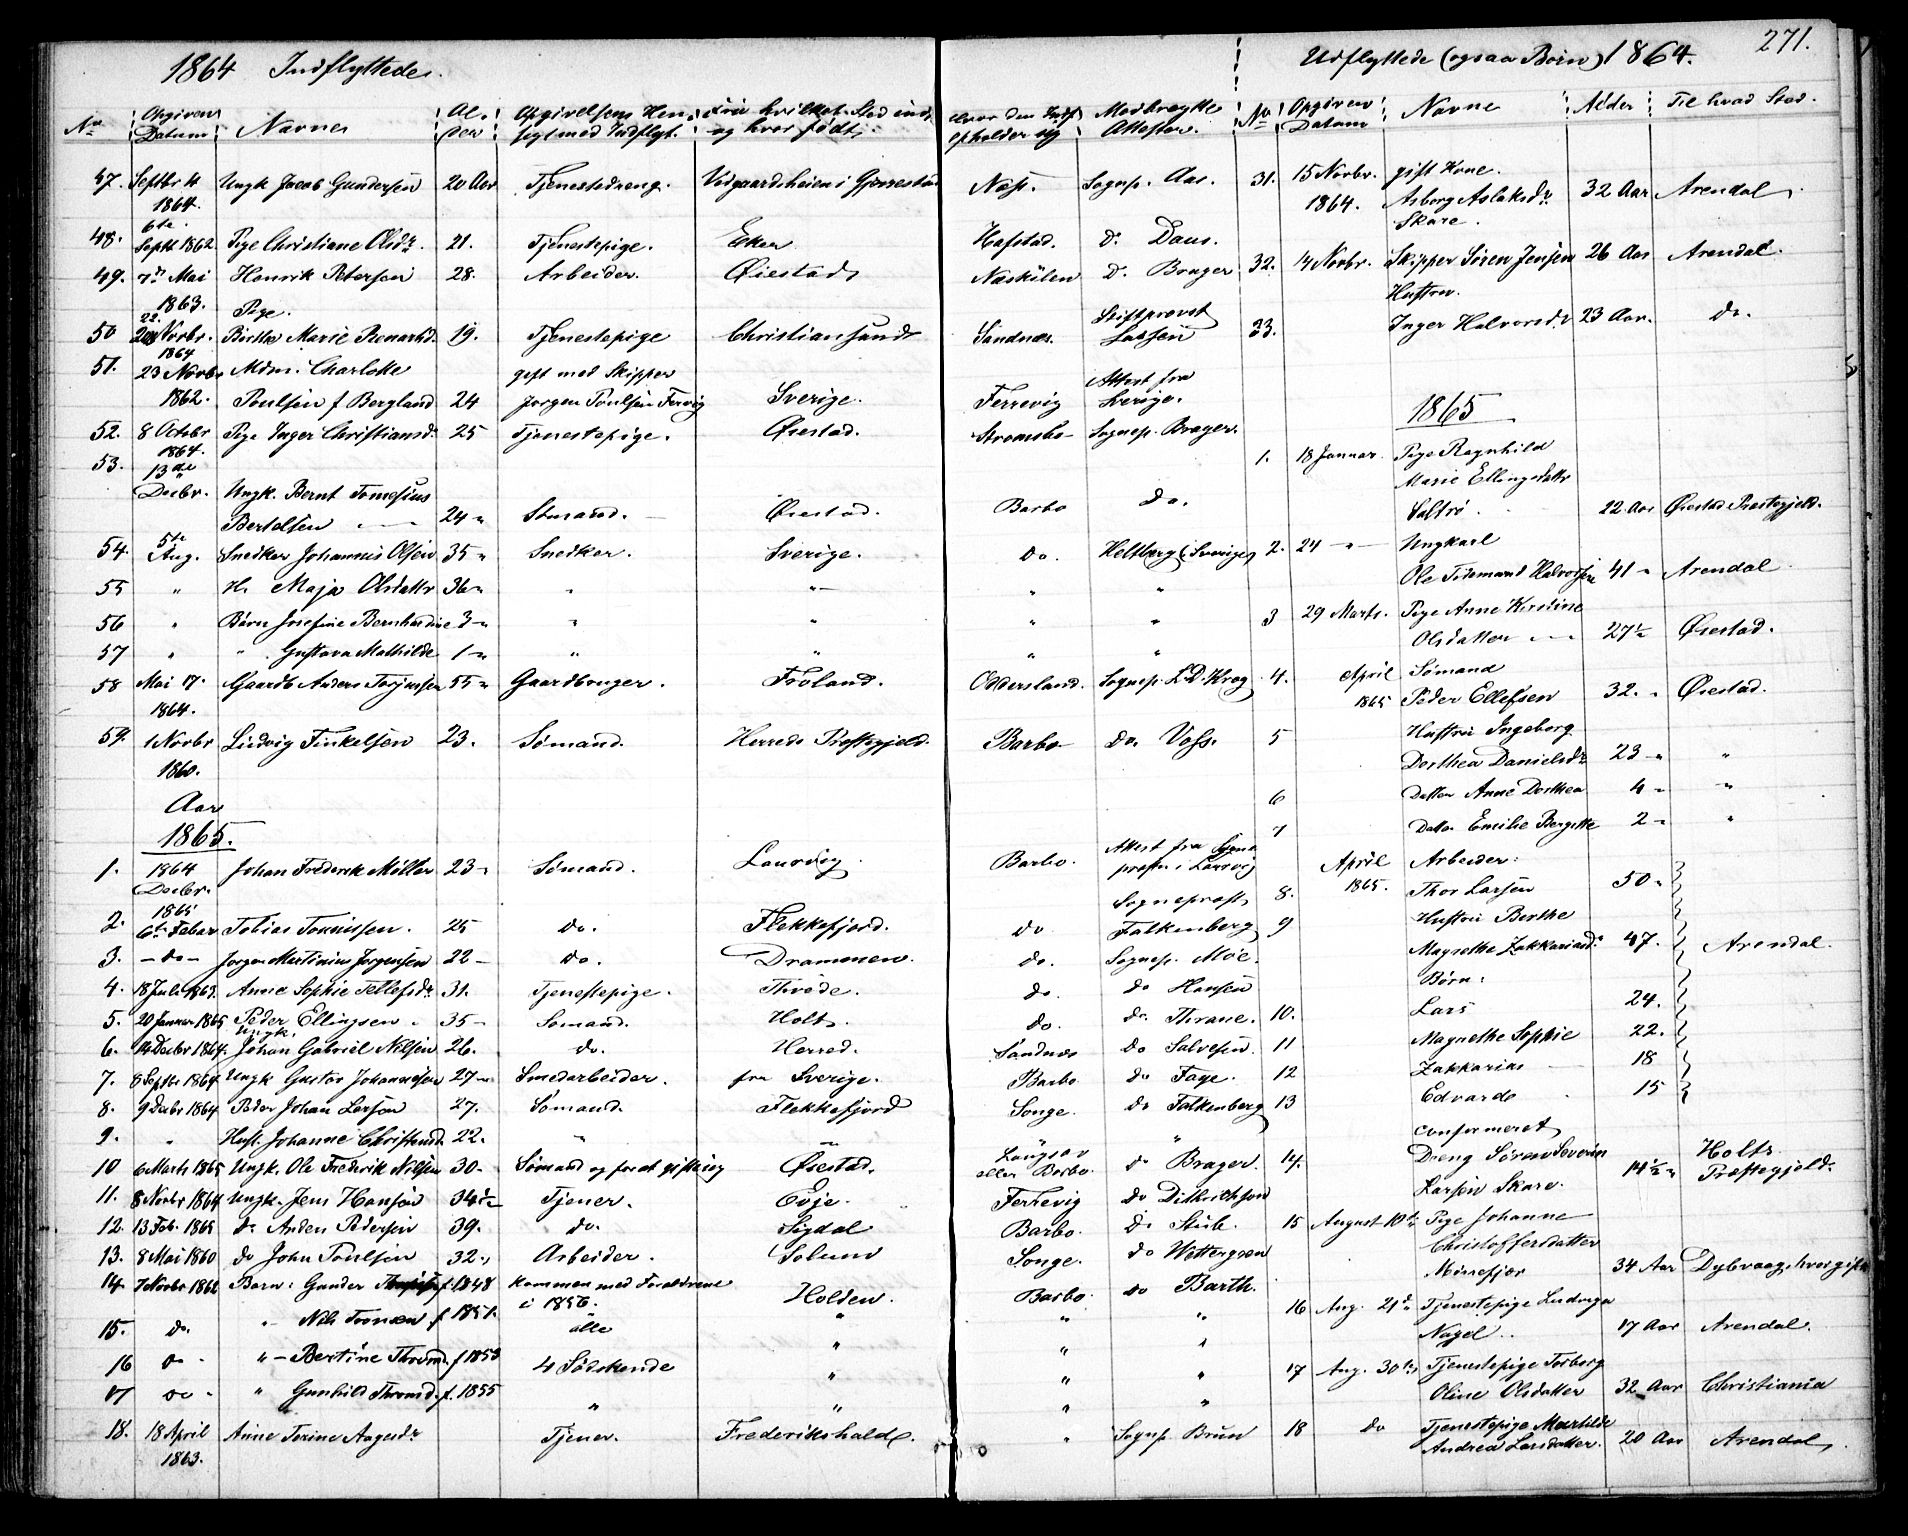 1864 Indflyttede.
No Opgiven Datum Navne Al- der Opgivelsens Hen- sigt med Indflyt. fra hvilket Sted ind. og hvor født.
47. Septbr 4 1864. Ungk Jacob Gundersen 20 Aar Tjenestedreng. i Gjerrestad Næs. Sognep. Aas.
48. 6te Septbr 1862 Pige Christiane Olsdr. 21. Tjenestepige. Eker Hafstad. Do Daus.
49. 7de Mai 1863. Henrik Petersen 28. Arbeider. Øiestad Næskilen D. Brager
50 22 Novbr. 1864 Pige. Birthe Marie 19. Tjenestepige Christiansand Sandnæs. Stiftprovst Lassen
51. 23 Novbr 1862. Mdm. Charlotte Poulsen f Bergland 24 gift med Skipper Jørgen Poulsen Sverige. Ferrevig Attest fra Sverige.
52. 8 Octobr 1864. Pige Inger Christiansdr 25 Tjenestepige. Øiestad. Strømsbo Sognep. Brager.
53. 13de Decbr. Ungk. Bernt Tomesius Bertelsen 24 " Sømand. Øiestad. Barbo do.
54. 5te Aug. Snedker Johannis Olsen 35 " Snedker. Sverige. Do. Heltberg (Sverige)
55 " H. Maja Olsdattr 36 " " " " "
56 " Børn Josefine Bernhardine 3 " " " " "
57 " " Gustava Mathilde 1 " " " " "
58 Mai 17. 1864. Gaardb Anders Torjussen 55 " Gaardbruger. Froland. Oddersland. Sognep. L. D. Krog
59. 1 Novbr 1860. Ludvig Finkelsen 23. Sømand. Herreds Præstegjeld. Barbo do. Voss.
Aar
1865.
1. 1864 Decbr. Johan Frederik Møller 23 " Sømand. Laurvig Barbo. Attest fra Sognepræsten i Laurvig
2. 1865 6te Febar Tobias Tønnissen. 25 do. Flekkefjord. do Sogneprest Falkenberg
3. - do - Jørgen Martinius Jørgensen 22 - do. Drammen. do. Sognep. Moe.
4. 18 Juli 1863. Anne Sophie Tellefsdr. 31. Tjenestepige. Thrøde. do. do Hansen
5. 20 Januar 1865 Peder Ellingsen. 35 - Sømand. Holt. do. do. Thrane.
6. 14 Decbr 1864. Ungk. Johan Gabriel Nilsen 26. do. Herred. Sandnæs do Salvesen.
7. 8 Septbr 1864 Ungk Gustav Johannesen 27 Smedarbeider. fra Sverige. Barbo do Faye.
8. 9 Decbr 1864 Peder Johan Larsen 27. Sømand. Flekkefjord Songe. do Falkenberg
9. " Hust. Johanne Christensd. 22. " " "
10 6 Marts 1865 Ungk. Ole Frederik Nilsen 30. Sømand og for at giftes Øiestad. Langsæv eller Barbo. do Brager.
11. 8 Novbr 1864 Ungk. Jens Hansen 34½ Tjener. Evje Ferrevig do Ditlevsen
12. 13 Feb. 1865 do Anders Pedersen 39. do. Sigdal Barbo. do Stub.
13. 8 Mai 1860 do John Poulsen 32. Arbeider. Solum Songe. do Wettergreen
14. 7 Novbr 1862 Børn: Gunder f. 1848 Kommen med Forældrene i 1856. Holden. Barbo. do Barth.
15. do. " - Nils f 1851. alle " " "
16 do - " - Bertine f 1853 4 Sødskende " " "
17 do - " Gunhild f. 1855 " " " "
18. 18 April 1863. Anne Torine Aagesdr Tjener. Frederikshald. " Sognep. Brun
Udflyttede (ogsaa Børn) 1864. 271.
Hvor den Indf. opholder sig Medbragte Attester. No Opgiven Datum Navne Alder Til hvad Sted.
31. 15 Novbr. 1864. gift Kone. Asborg Aslaksdr. Skare. 32 Aar Arendal
32. 14 Novbr. Skipper Søren Jensen 26 Aar Arendal.
33. Hustru. Inger Halvorsdr 23 Aar. do.
1865
1. 18 Januar. Pige Ragnhild Marie Ellingsdattr Saltrø 22 Aar Øiestad Præstegjeld.
2. 24 " Ungkarl Ole Tidemand Halvorsen 41 " Arendal
3 29 Marts. Pige Anne Kirstine Olsdatter 27½ Øiestad.
4. April 1865 Sømand Peder Ellefsen 32. " Øiestad.
5 Hustru Ingeborg Dorthea Danielsdr 23 " "
6 Datter Anne Dorthea 4 " "
7 Datter Emilie Bergitte 2 " "
8. April 1865. Arbeider: Thor Larsen 50 "
9 Hustru Berthe Magnethe Zakkariasd. 47. Arendal.
Børn:
10. Lars 24.
11 Magnethe Sophie 22.
12 Zakkarias 18
13 Edvard 15
14. confirmeret Dreng Søren Severin Larsen Skare. 14½ " Holts Præstegjeld.
15 August 10de Pige Johanne Christoffersdatter 34 Aar Dybvaag, hvor gift
16 Aug. 21de Tjenestepige Ludviga Nagel 17 Aar Arendal.
17 Aug. 30te Tjenestepige Torborg Oline Olsdatter 32 Aar Christiania
18 do Tjenestepige Mathilde Andrea Larsdatter. 20 Aar Arendal